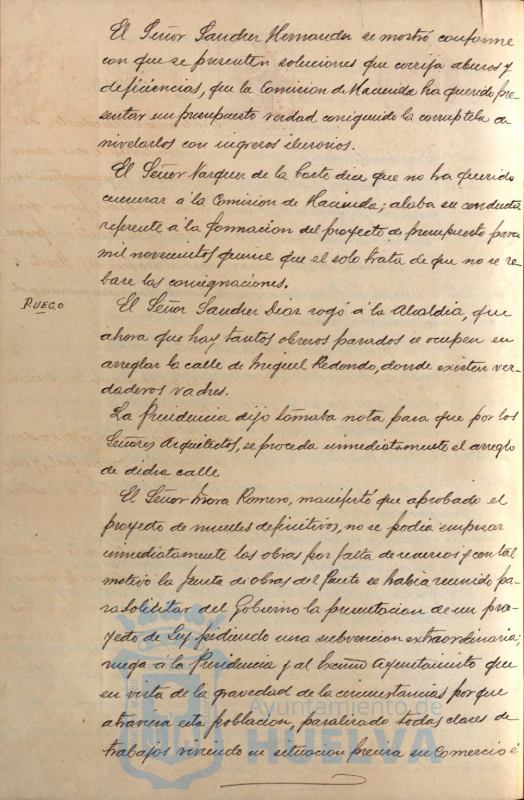 El Señor Sanchez Hernandez se mostró conforme
con que se presenten soluciones que corrija abusos y
deficiencias, que la Comision de Hacienda ha querido pre-
sentar un presupuesto verdad corrigiendo la corruptela de
nivelarlos con ingresos ilusorios.
El Señor Vazquez de la Corte dice que no ha querido
censurar á la Comision de Hacienda; alaba su conducta
referente á la formacion del proyecto de presupuesto para
mil novecientos quince que el solo trata de que no se re-
base las consignaciones.
RUEGO
El Señor Sanchez Diaz rogó á la Alcaldia, que
ahora que hay tantos obreros parados se ocupen en
arreglar la calle de Miguel Redondo, donde existen ver-
daderos vadres.
La Presidencia dijo tomaba nota para que por los
Señores Arquitectos, se proceda inmediatamente el arreglo
de dicha calle
El Señor Mora Romero, manifestó que aprobado el
proyecto de muelles definitivos, no se podia empezar
inmediatamente las obras por falta de recursos y con tal
motivo la Junta de obras del Puerto se habia reunido pa-
ra solicitar del Gobierno la presentacion de un pro-
yecto de Ley pidiendo una subvencion extraordinaria;
ruega á la Presidencia y al Excmo Ayuntamiento que
en vista de la gravedad de la circunstancias por que
atraviesa esta poblacion, paralizado todas clases de
trabajos viviendo en situacion precaria su Comercio é
Ayuntamiento de
HUELVA